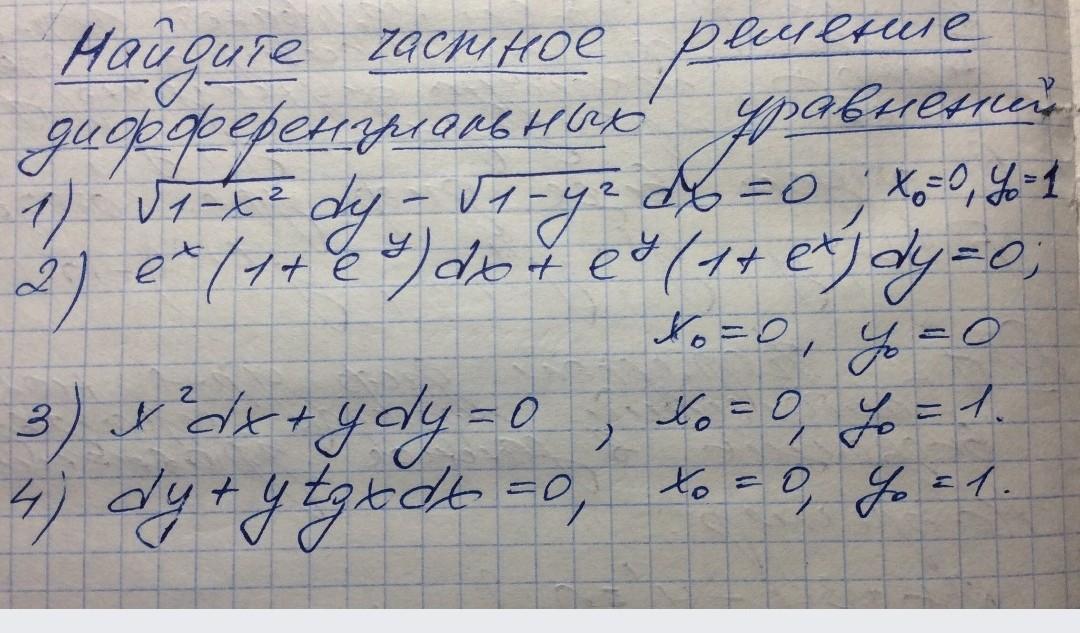 Найдите частное решение
дифференциальных уравнений
1) √1-x² dy - √1-y² dx = 0 ; x₀=0, y₀=1
2) eˣ(1+eʸ)dx + eʸ(1+eˣ)dy=0;
x₀=0, y₀=0
3) x²dx+ydy=0 , x₀=0, y₀=1.
4) dy+y tgxdx=0, x₀=0, y₀=1.